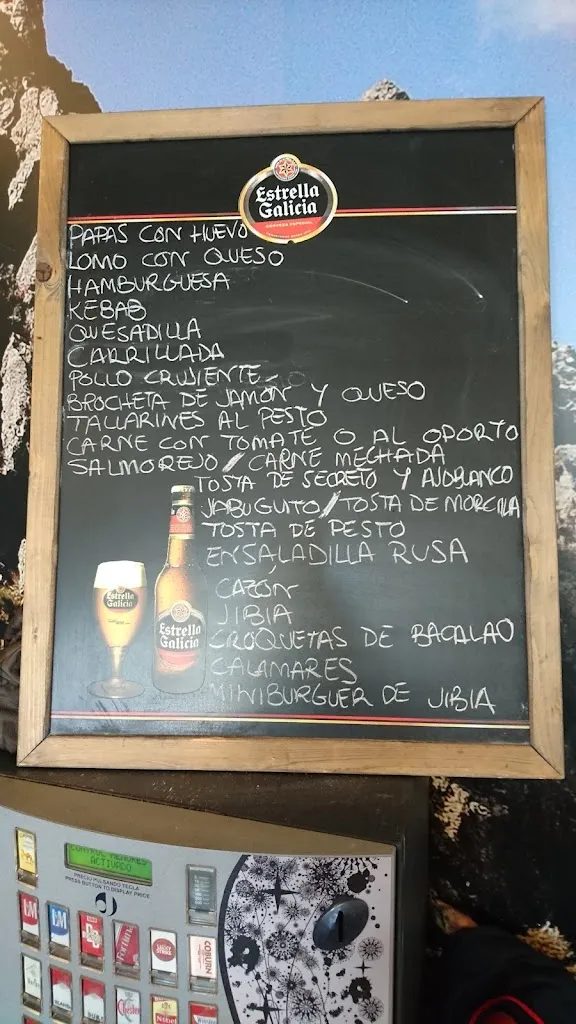 Estrella
Galicia
CERVEZA ESPECIAL
PAPAS CON HUEVO
LOMO CON QUESO
HAMBURGUESA
KEBAB
QUESADILLA
CARRILLADA
POLLO CRUJIENTE
BROCHETA DE JAMÓN Y QUESO
TALLARINES AL PESTO
CARNE CON TOMATE O AL OPORTO
SALMOREJO / CARNE MECHADA
TOSTA DE SECRETO Y AJOBLANCO
JABUGUITO / TOSTA DE MORCILLA
TOSTA DE PESTO
ENSALADILLA RUSA
CAZÓN
JIBIA
CROQUETAS DE BACALAO
CALAMARES
MINIBURGUER DE JIBIA
Estrella
Galicia
Estrella
Galicia
CONTROL MENORES
ACTIVADO
PRECIO PULSANDO TECLA
PRESS BUTTON TO DISPLAY PRICE
LM
LM
Fortuna
LUCKY
STRIKE
COBURN
Chester
Nobel
Winston